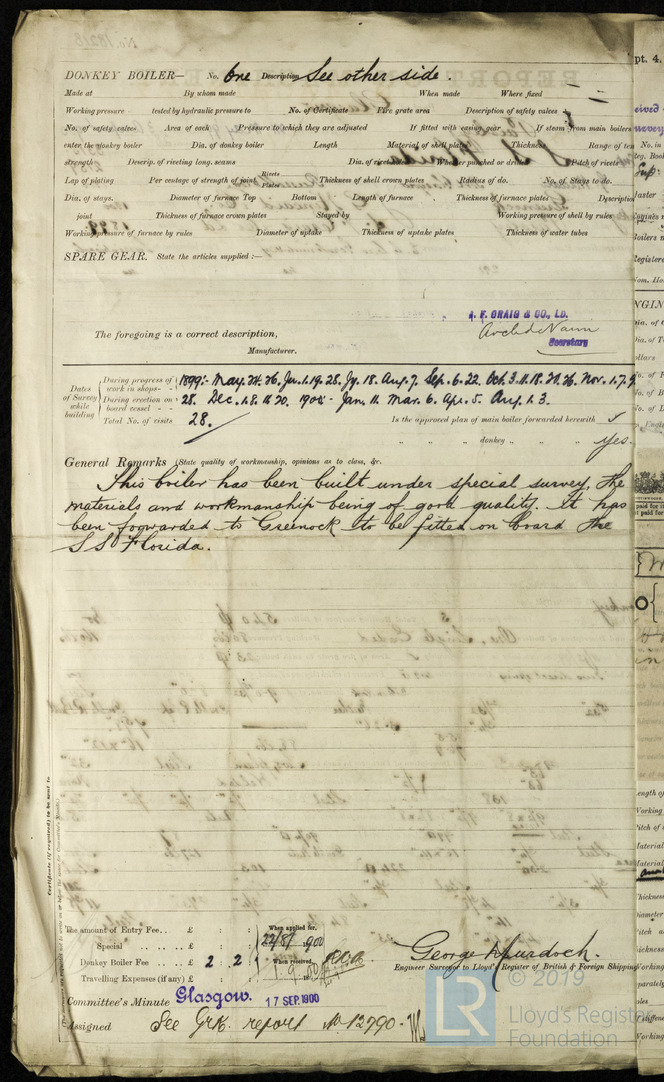 DONKEY BOILER— No. One Description See other side.
Made at By whom made When made Where fixed
Working pressure tested by hydraulic pressure to No. of Certificate Fire grate area Description of safety valves
No. of safety valves Area of each Pressure to which they are adjusted If fitted with easing gear If steam from main boilers
enter the donkey boiler Dia. of donkey boiler Length Material of shell plates Thickness Range of ten
strength Descrip. of riveting long. seams Dia. of rivet Whether punched or drilled Pitch of rivets
Lap of plating Per centage of strength of joint Rivets Plates Thickness of shell crown plates Radius of do. No. of Stays to do.
Dia. of stays. Diameter of furnace Top Bottom Length of furnace Thickness of furnace plates Description
joint Thickness of furnace crown plates Stayed by Working pressure of shell by rules
Working pressure of furnace by rules Diameter of uptake Thickness of uptake plates Thickness of water tubes
SPARE GEAR. State the articles supplied :—
A. F. CRAIG & CO., LD.
The foregoing is a correct description,
Secretary
Manufacturer.
Dates of Survey while building
During progress of work in shops - - 1899:- May. 24. 26. Ju. 1. 19. 28. Jy. 18. Aug. 7. Sep. 6. 22. Oct. 3. 11. 18. 20. 26. Nov. 1. 7. 9
During erection on board vessel - - 28. Dec. 1. 8. 11. 20. 1900:- Jan. 11. Mar. 6. Apr. 5. Aug. 1. 3.
Total No. of visits 28.
Is the approved plan of main boiler forwarded herewith
" " " donkey " " yes.
General Remarks (State quality of workmanship, opinions as to class, &c.
This boiler has been built under special survey, the
materials and workmanship being of good quality. It has
been forwarded to Greenock to be fitted on board the
SS Florida.
Certificate (if required) to be sent to
The amount of Entry Fee.. £ : :
Special .. .. .. .. £ : :
Donkey Boiler Fee .. .. £ 2 : 2 :
Travelling Expenses (if any) £ : :
When applied for,
22/8/1900
When received,
1.9.00
George Murdoch.
Engineer Surveyor to Lloyd's Register of British & Foreign Shipping
Committee's Minute Glasgow. 17 SEP. 1900
Assigned See Grk. report No 12790.
© 2019
LR
Lloyd's Register
Foundation